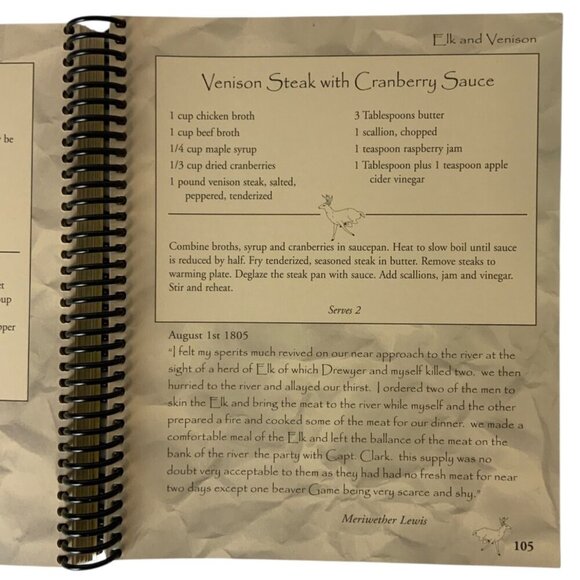 Elk and Venison
Venison Steak with Cranberry Sauce
1 cup chicken broth
1 cup beef broth
1/4 cup maple syrup
1/3 cup dried cranberries
1 pound venison steak, salted,
peppered, tenderized
3 Tablespoons butter
1 scallion, chopped
1 teaspoon raspberry jam
1 Tablespoon plus 1 teaspoon apple
cider vinegar
Combine broths, syrup and cranberries in saucepan. Heat to slow boil until sauce
is reduced by half. Fry tenderized, seasoned steak in butter. Remove steaks to
warming plate. Deglaze the steak pan with sauce. Add scallions, jam and vinegar.
Stir and reheat.
Serves 2
August 1st 1805
"I felt my sperits much revived on our near approach to the river at the
sight of a herd of Elk of which Drewyer and myself killed two. we then
hurried to the river and allayed our thirst. I ordered two of the men to
skin the Elk and bring the meat to the river while myself and the other
prepared a fire and cooked some of the meat for our dinner. we made a
comfortable meal of the Elk and left the ballance of the meat on the
bank of the river the party with Capt. Clark. this supply was no
doubt very acceptable to them as they had had no fresh meat for near
two days except one beaver Game being very scarce and shy."
Meriwether Lewis
105
be